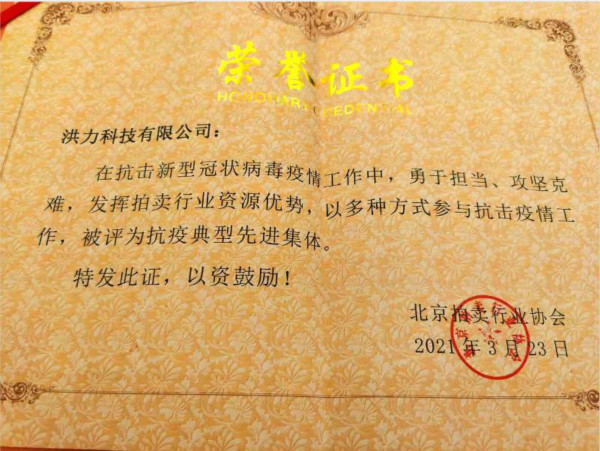 荣誉证书
洪力科技有限公司：
在抗击新型冠状病毒疫情工作中，勇于担当、攻坚克
难，发挥拍卖行业资源优势，以多种方式参与抗击疫情工
作，被评为抗疫典型先进集体。
特发此证，以资鼓励！
北京拍卖行业协会
2021年3月23日